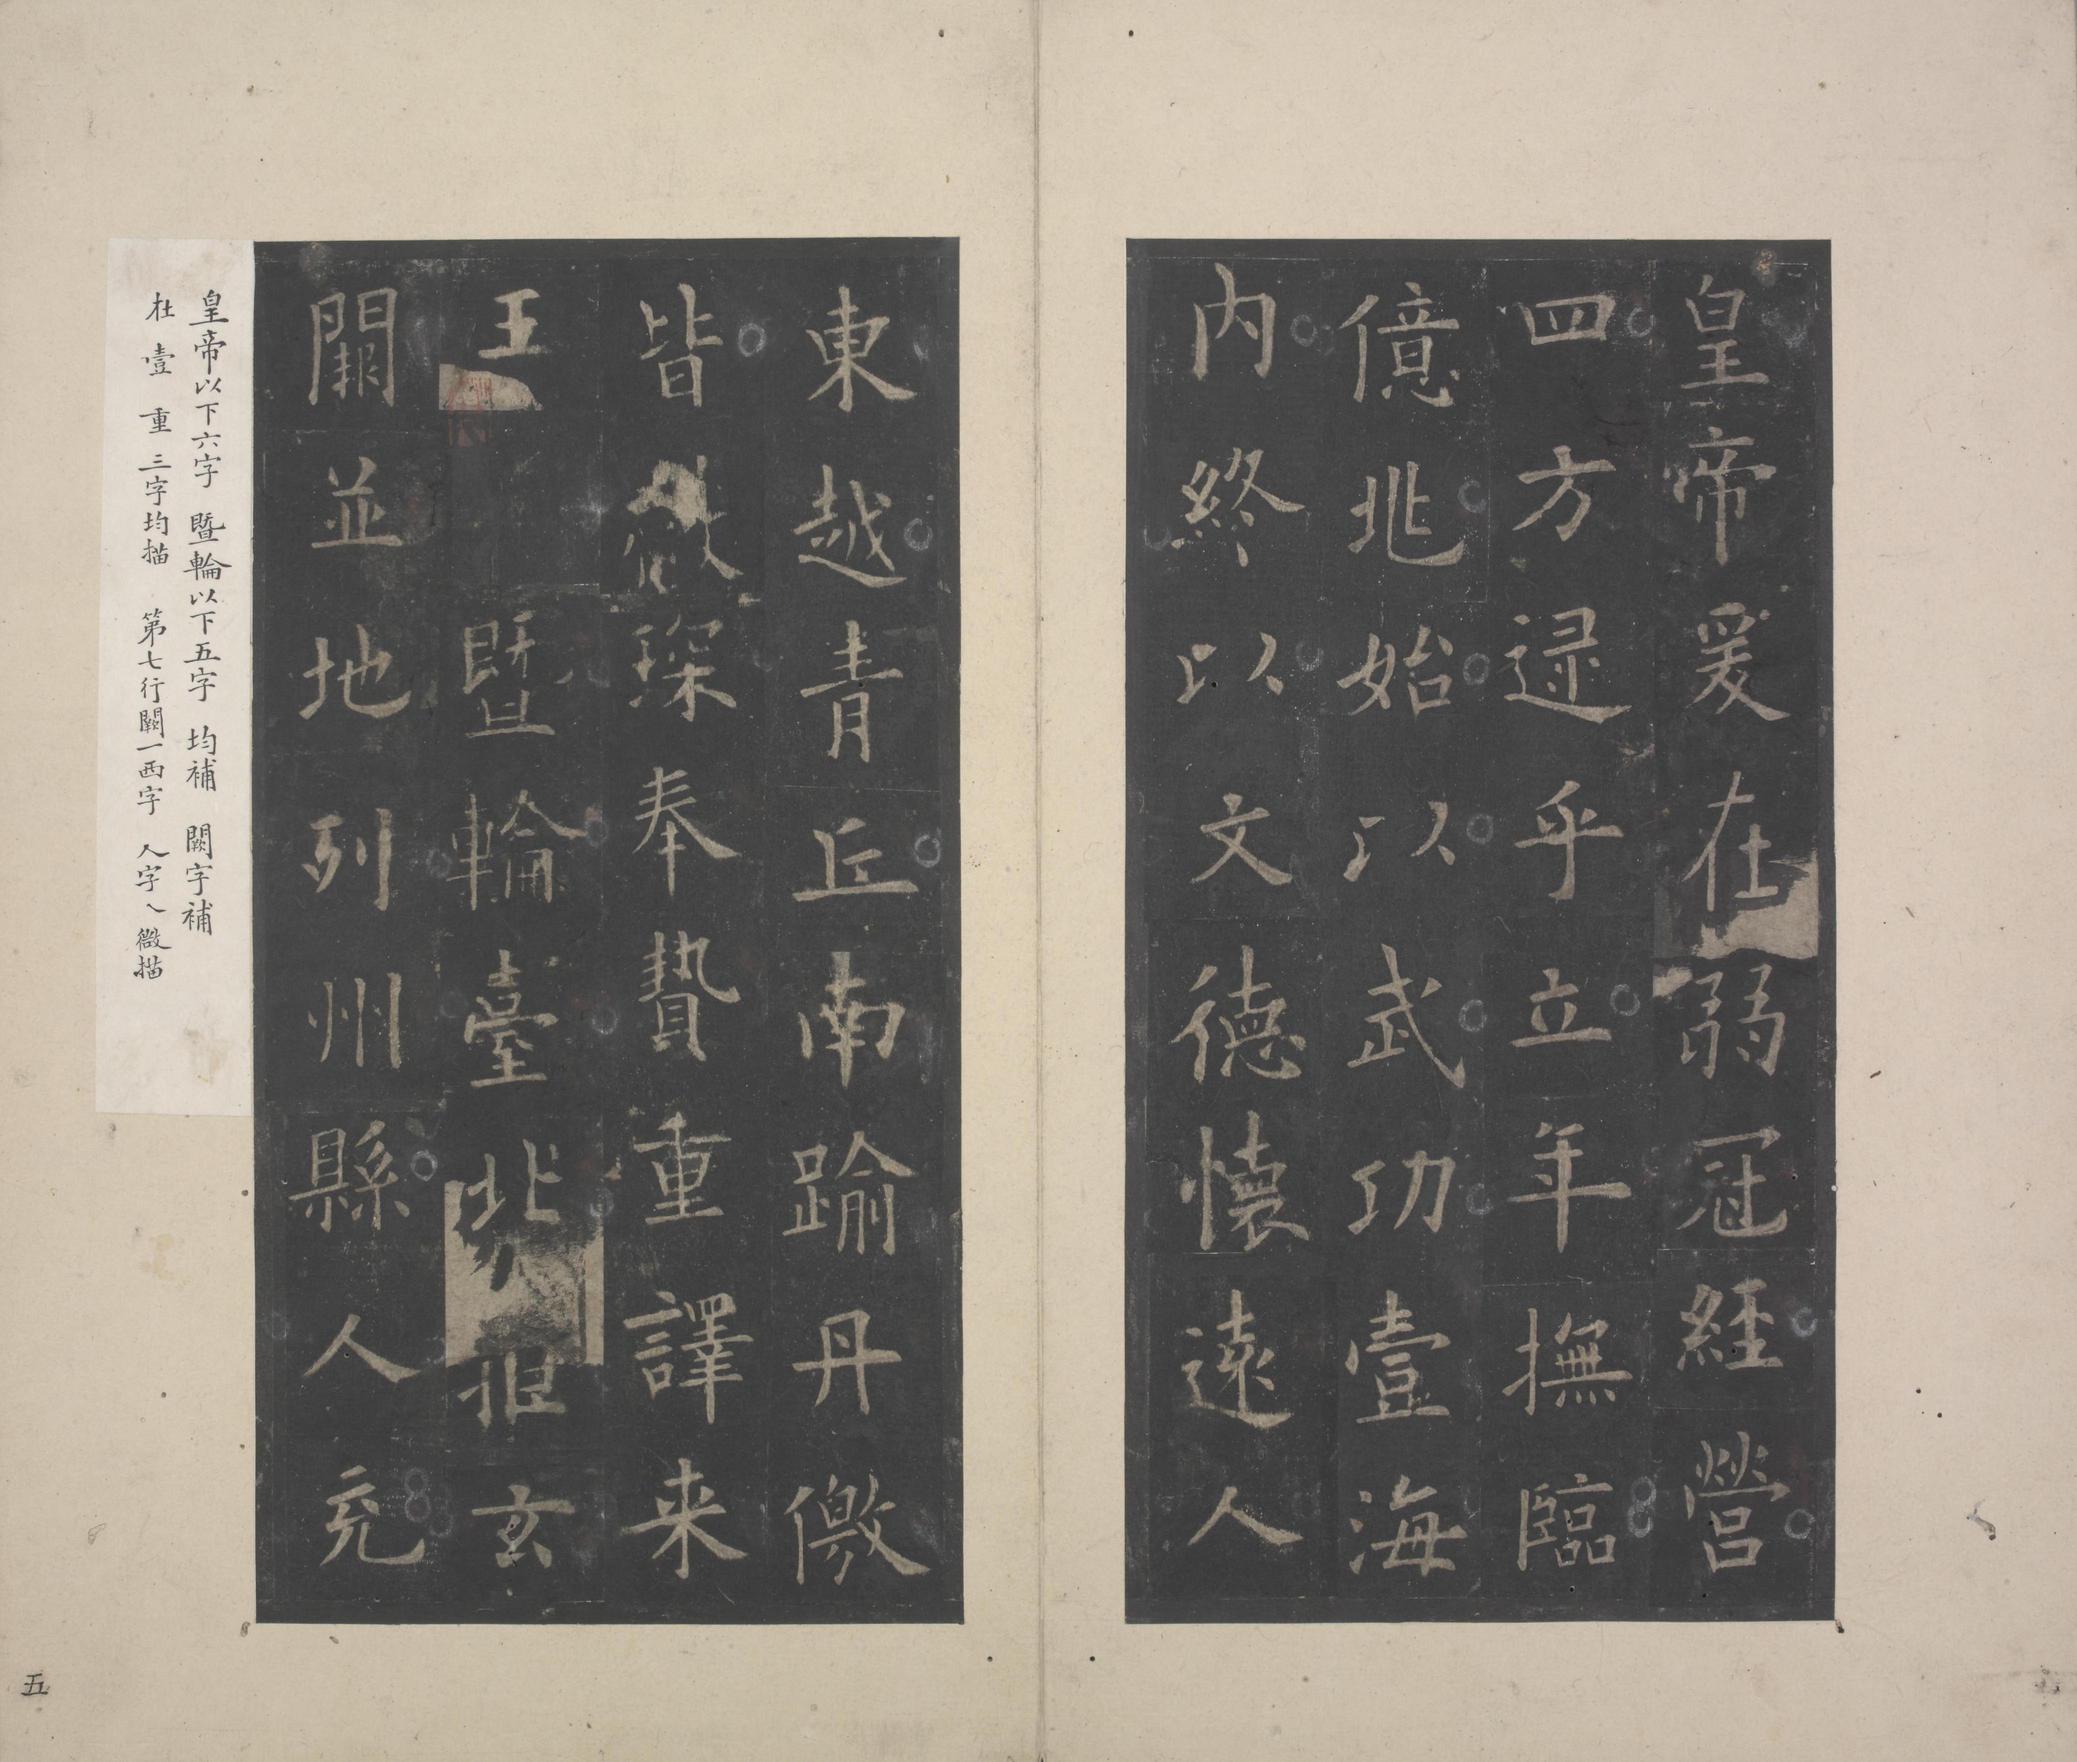 皇帝爰在弱冠經營
四方逯乎立年撫臨
億兆始以武功壹海
内終以文德懷遠人
東越青丘南踰丹儌
皆獻琛奉贄重譯来
王暨輪臺北拒玄
闕並地列州縣人充
皇帝以下六字 暨輪以下五字 均補 闕字補
在 壹 重 三字均描 第七行闕一西字 人字乀微描
五